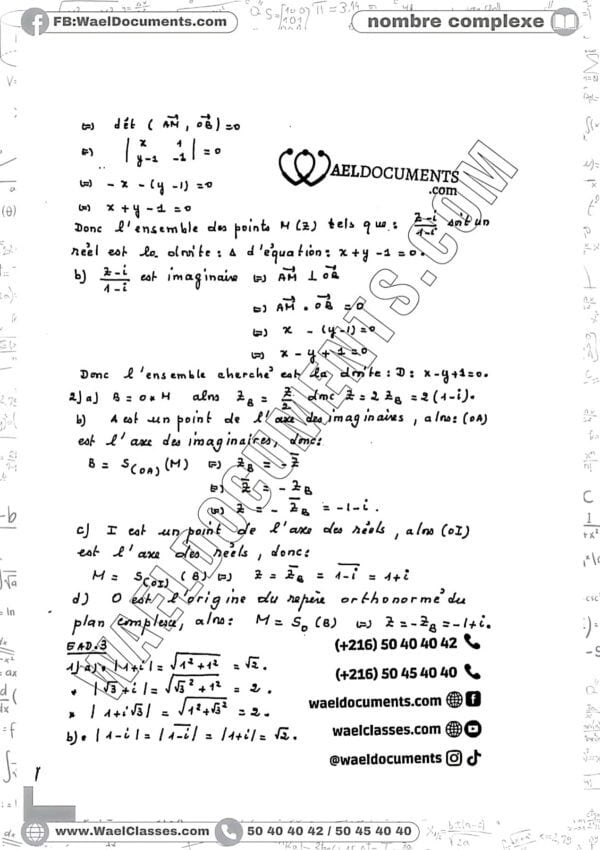 FB:WaelDocuments.com
nombre complexe
⇔ dét ( AM⃗ , OB⃗ ) = 0
⇔ | x 1 ; y-1 -1 | = 0
⇔ - x - (y-1) = 0
⇔ x + y - 1 = 0
WAELDOCUMENTS
.com
Donc l'ensemble des points M(z) tels que : (z-i)/(1-i) soit un
réel est la droite : Δ d'équation : x+y-1=0.
b) (z-i)/(1-i) est imaginaire ⇔ AM⃗ ⊥ OB⃗
⇔ AM⃗ . OB⃗ = 0
⇔ x - (y-1) = 0
⇔ x - y + 1 = 0
Donc l'ensemble cherché est la droite : D : x-y+1=0.
2) a) B = O * M alors z_B = z/2 donc z = 2 z_B = 2(1-i).
b) A est un point de l'axe des imaginaires, alors : (OA)
est l'axe des imaginaires, donc :
B = S_(OA) (M) ⇔ z_B = - z̅
⇔ z̅ = - z_B
⇔ z = - z̅_B = -1-i.
c) I est un point de l'axe des réels, alors (OI)
est l'axe des réels, donc :
M = S_(OI) (B) ⇔ z = z̅_B = \overline{1-i} = 1+i
d) O est l'origine du repère orthonormé du
plan complexe, alors : M = S_O (B) ⇔ z = -z_B = -1+i.
EAD.3
1) a) • |1+i| = √(1²+1²) = √2.
• |√3+i| = √(√3²+1²) = 2.
* |1+i√3| = √(1²+√3²) = 2.
b) • |1-i| = |\overline{1-i}| = |1+i| = √2.
(+216) 50 40 40 42
(+216) 50 45 40 40
waeldocuments.com
waelclasses.com
@waeldocuments
WAELDOCUMENTS.COM
1
www.WaelClasses.com
50 40 40 42 / 50 45 40 40